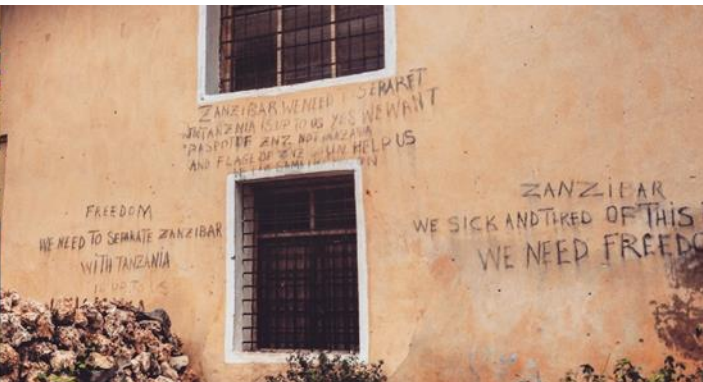 ZANZIBAR WE NEED SEPARET
TANZANIA IS UP TO US YES WE WANT
PASPOT OF ZNZ NOT TANZANIA
AND FLAGE OF ZNZ UN HELP US
FREEDOM
WE NEED TO SEPARATE ZANZIBAR
WITH TANZANIA
ZANZIBAR
WE SICK AND TIRED OF THIS
WE NEED FREEDO